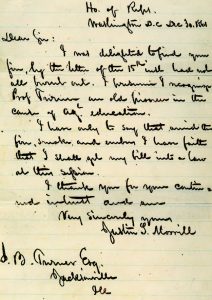 Ho. of Reps.
Washington D.C. Dec 30. 1861
Dear Sir:
I was delighted to find you
fire, by the letter of the 15th inst. had not
all burnt out. I presume I recognize
Prof Turner an old pioneer in the
cause of Ag. education.
I have only to say that amid the
fire, smoke, and embers I have faith
that I shall get my bill into a law
at this session.
I thank you for your continu-
ed interest and am
Very Sincerely yours
Justin S. Morrill
J. B. Turner Esq.
Jacksonville
Ill